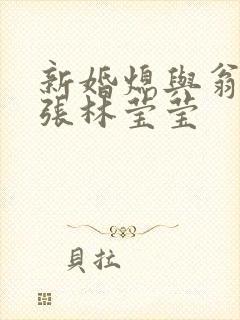 新婚熄與翁
張林莹莹
貝拉